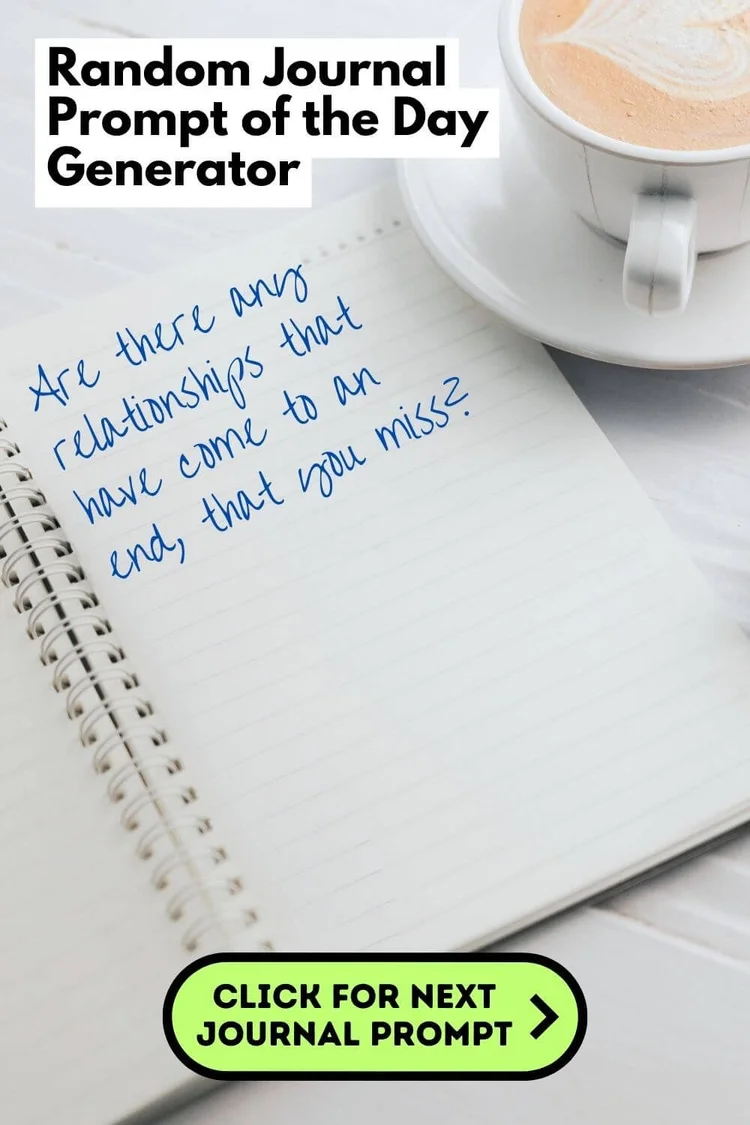 Random Journal
Prompt of the Day
Generator
Are there any
relationships that
have come to an
end, that you miss?
CLICK FOR NEXT
JOURNAL PROMPT